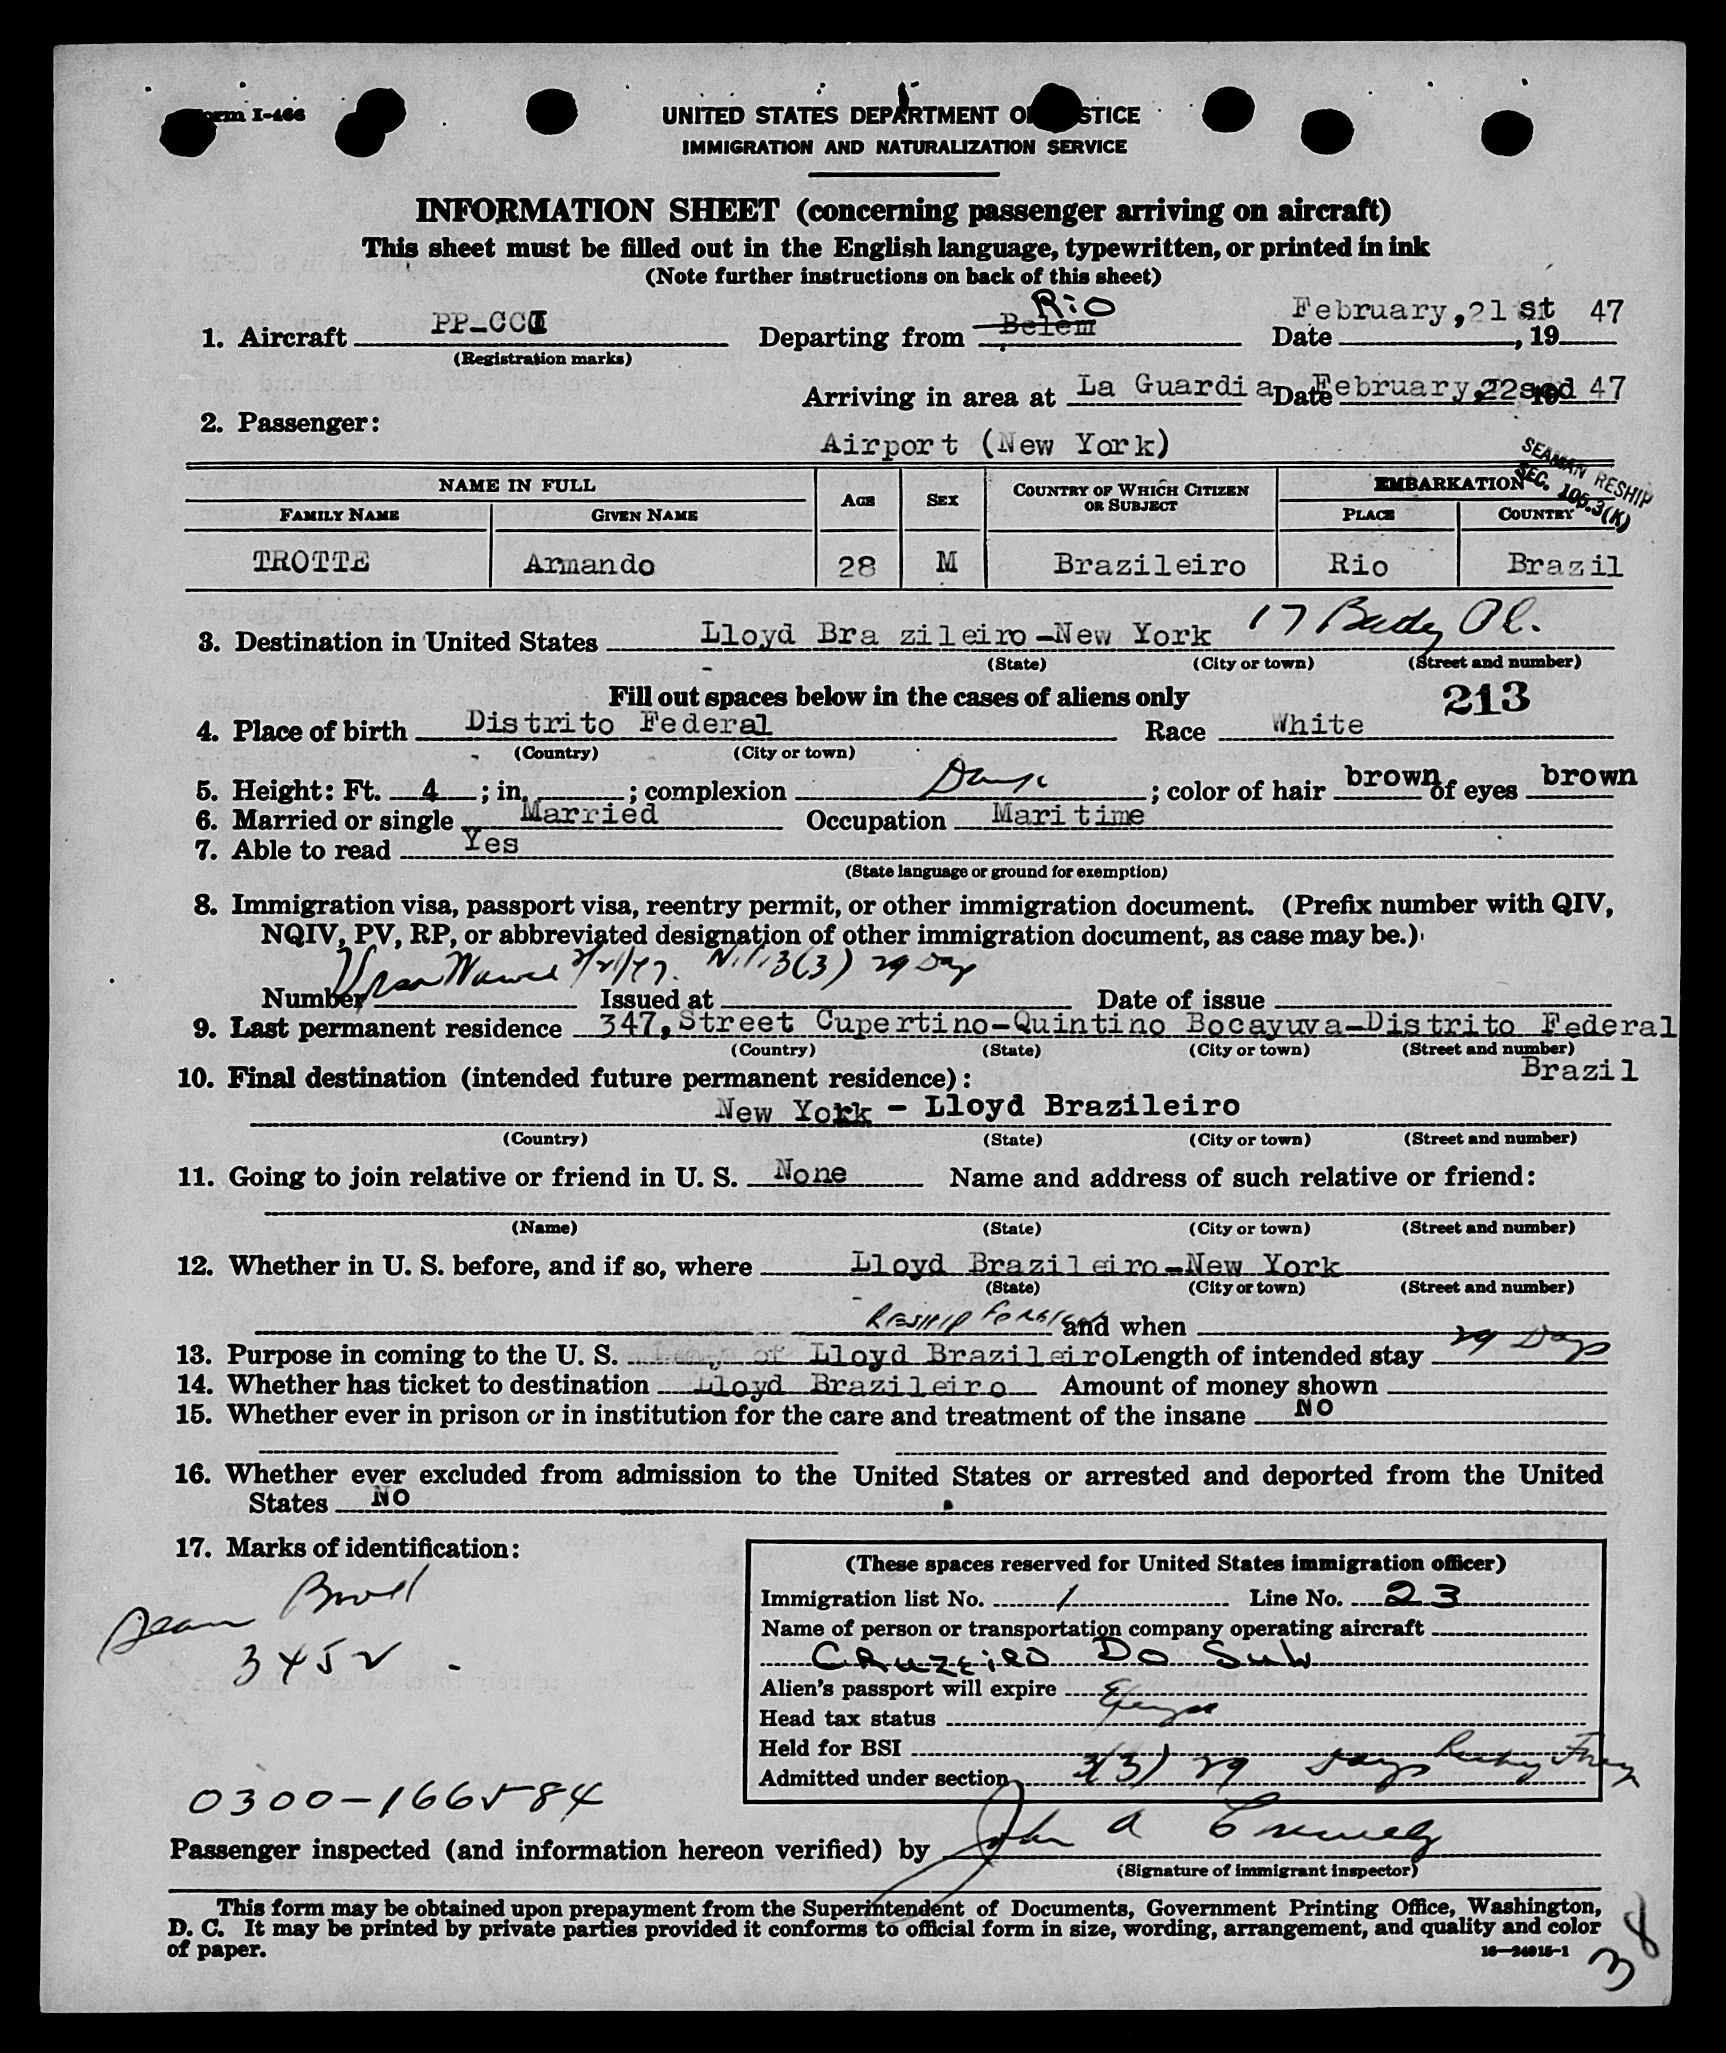 Form I-466
UNITED STATES DEPARTMENT OF JUSTICE
IMMIGRATION AND NATURALIZATION SERVICE
INFORMATION SHEET (concerning passenger arriving on aircraft)
This sheet must be filled out in the English language, typewritten, or printed in ink
(Note further instructions on back of this sheet)
1. Aircraft PP-CCI Departing from Belem Rio Date February, 21st, 19 47
(Registration marks)
Arriving in area at La Guardia Date February, 22 19 47
2. Passenger:
Airport (New York)
SEAMAN RESHIP
SEC. 105.3(K)
NAME IN FULL AGE SEX COUNTRY OF WHICH CITIZEN OR SUBJECT EMBARKATION
FAMILY NAME GIVEN NAME PLACE COUNTRY
TROTTE Armando 28 M Brazileiro Rio Brazil
3. Destination in United States Lloyd Bra zileiro-New York 17 Pl.
(State) (City or town) (Street and number)
Fill out spaces below in the cases of aliens only
213
4. Place of birth Distrito Federal Race White
(Country) (City or town)
5. Height: Ft. 4 ; in. ; complexion ; color of hair brown of eyes brown
6. Married or single Married Occupation Maritime
7. Able to read Yes
(State language or ground for exemption)
8. Immigration visa, passport visa, reentry permit, or other immigration document. (Prefix number with QIV,
NQIV, PV, RP, or abbreviated designation of other immigration document, as case may be.)
Visa Waived 2/21/47. 3(3) 29 Days
Number Issued at Date of issue
9. Last permanent residence 347, Street Cupertino-Quintino Bocayuva-Distrito Federal
(Country) (State) (City or town) (Street and number)
Brazil
10. Final destination (intended future permanent residence):
New York - Lloyd Brazileiro
(Country) (State) (City or town) (Street and number)
11. Going to join relative or friend in U. S. None Name and address of such relative or friend:
(Name) (State) (City or town) (Street and number)
12. Whether in U. S. before, and if so, where Lloyd Brazileiro-New York
(State) (City or town) (Street and number)
RESHIP FOREIGN and when
13. Purpose in coming to the U. S. of Lloyd Brazileiro Length of intended stay 29 Days
14. Whether has ticket to destination Lloyd Brazileiro Amount of money shown
15. Whether ever in prison or in institution for the care and treatment of the insane NO
16. Whether ever excluded from admission to the United States or arrested and deported from the United
States NO
17. Marks of identification:
3452
0300-166584
(These spaces reserved for United States immigration officer)
Immigration list No. 1 Line No. 23
Name of person or transportation company operating aircraft
CRUZEIRO DO SUL
Alien's passport will expire
Head tax status
Held for BSI
Admitted under section 3(3) 29 days
Passenger inspected (and information hereon verified) by John A
(Signature of immigrant inspector)
This form may be obtained upon prepayment from the Superintendent of Documents, Government Printing Office, Washington,
D. C. It may be printed by private parties provided it conforms to official form in size, wording, arrangement, and quality and color
of paper.
16-24015-1
38